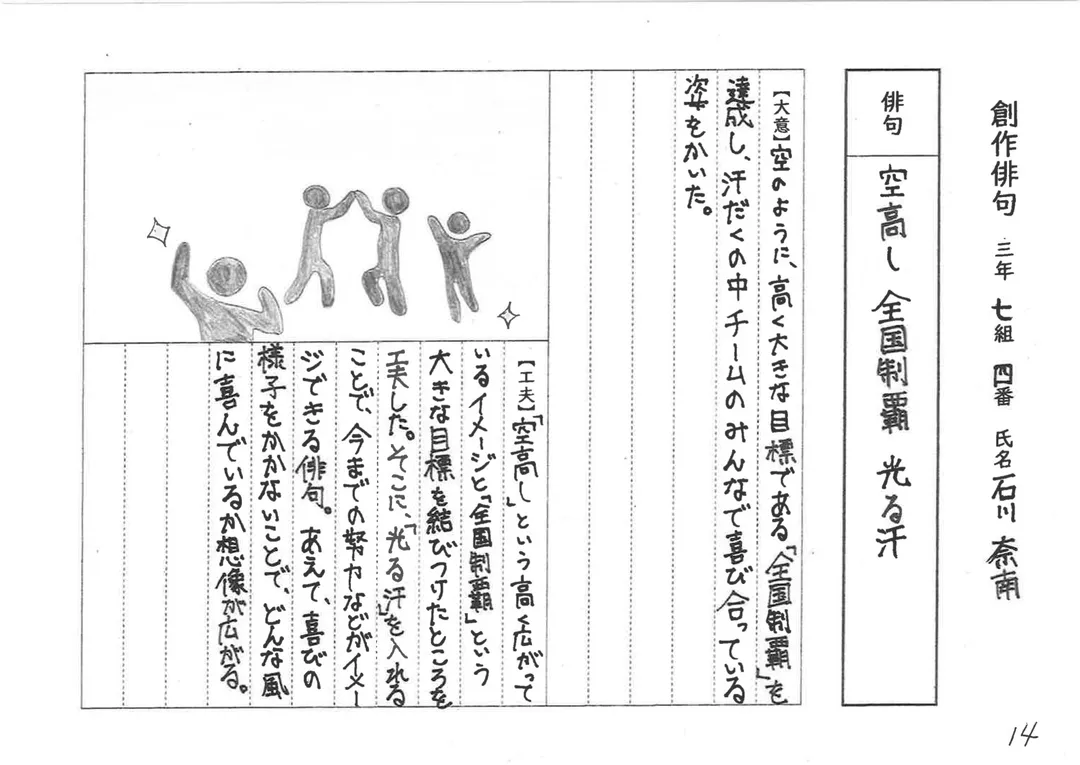 創作俳句 三年 七組 四番 氏名 石川 奈南
俳句
空高し 全国制覇 光る汗
【大意】空のように、高く大きな目標である「全国制覇」を
達成し、汗だくの中チームのみんなで喜び合っている
姿をかいた。
【工夫】「空高し」という高く広がって
いるイメージと「全国制覇」という
大きな目標を結びつけたところを
工夫した。そこに、「光る汗」を入れる
ことで、今までの努力などがイメー
ジできる俳句。あえて、喜びの
様子をかかないことで、どんな風
に喜んでいるか想像が広がる。
14